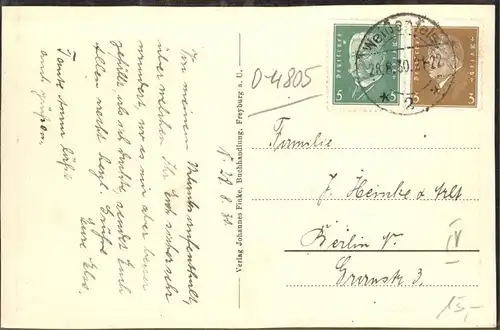 Von meinem Urlaubsaufenthalt,
über welchen Ihr Euch sicher sehr
wundert, wo es mir aber besser
gefällt als ich dachte sendet Euch
Allen recht herzl. Grüße
Eure
Tante Anna läßt
auch grüßen.
28.8.30
Verlag Johannes Finke, Buchhandlung, Freyburg a. U.
O-4805
Deutsches Reich
5 5
3
28.8.30
21-22
Familie
J. Heinke
Berlin N.
3.
IV
15,-